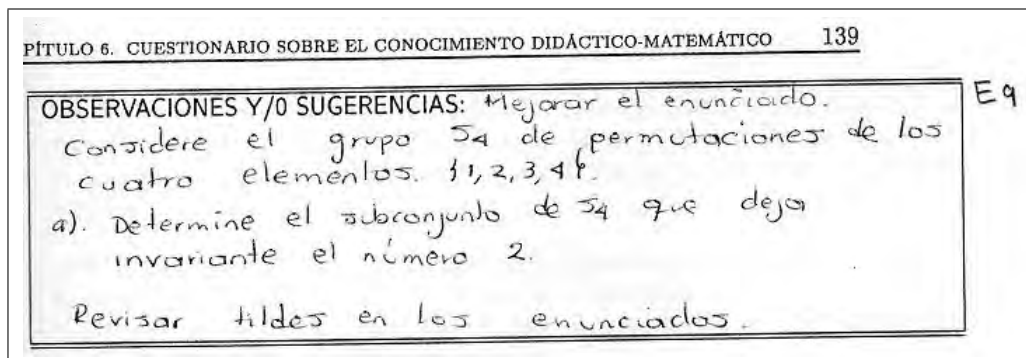 PÍTULO 6. CUESTIONARIO SOBRE EL CONOCIMIENTO DIDÁCTICO-MATEMÁTICO 139
OBSERVACIONES Y/0 SUGERENCIAS: Mejorar el enunciado. E9
Considere el grupo S4 de permutaciones de los
cuatro elementos. {1, 2, 3, 4}.
a). Determine el subconjunto de S4 que deja
invariante el número 2.
Revisar tildes en los enunciados.